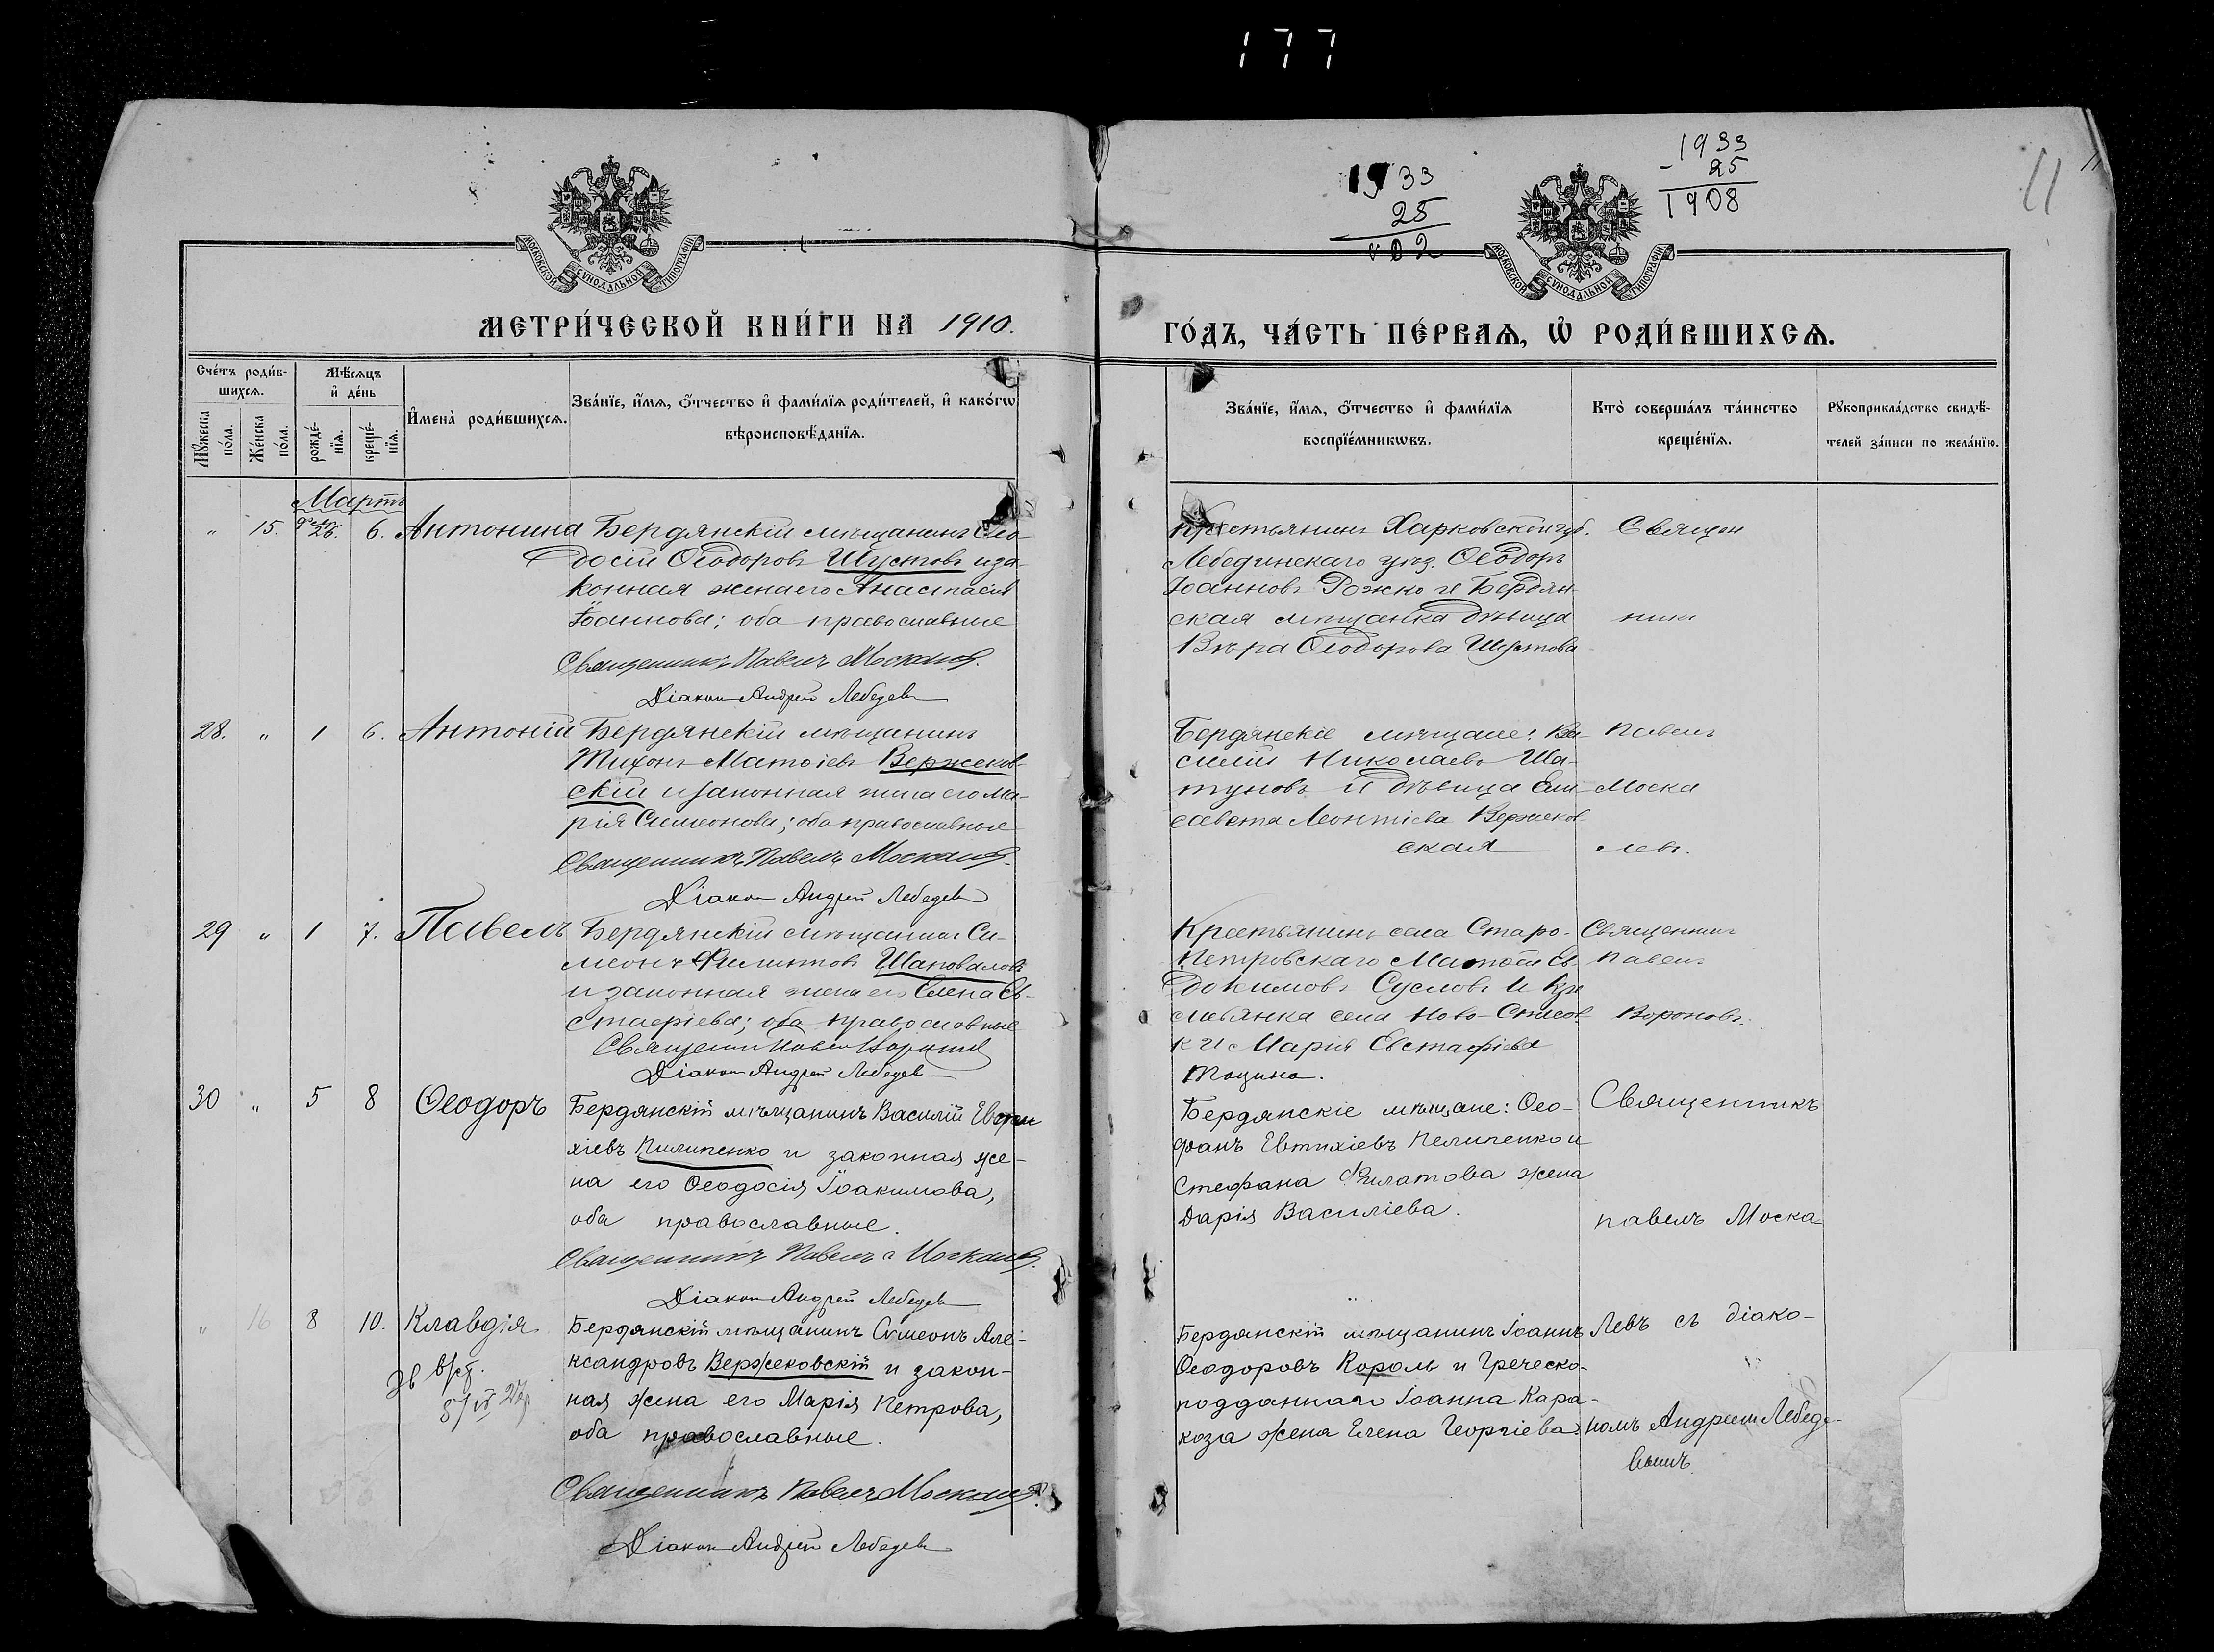 177
1933
25
1933
- 25
1908
11
МОСКОВСКОЙ СУНОДАЛЬНОЙ ТИПОГРАФІИ
МОСКОВСКОЙ СУНОДАЛЬНОЙ ТИПОГРАФІИ
МЕТРИ́ЧЕСКОЙ КНИ́ГИ НА 1910.
ГО́ДЪ, ЧА́СТЬ ПЕ́РВАѦ, Ѡ҆ РОДИ́ВШИХСѦ.
Сче́тъ роди́в-
шихсѧ.
Мѣ́сѧцъ
и҆ де́нь
Мꙋ́жеска
по́ла.
Же́нска
по́ла.
рожде́-
нїѧ.
креще́-
нїѧ.
И҆мена̀ роди́вшихсѧ.
Зва́нїе, и҆́мѧ, ѻ҆́тчество и҆ фами́лїѧ роди́телей, и҆ како́гѡ
вѣроисповѣ́данїѧ.
Зва́нїе, и҆́мѧ, ѻ҆́тчество и҆ фами́лїѧ
воспрїе́мникѡвъ.
Кто̀ соверша́лъ та́инство
креще́нїѧ.
Рꙋкоприкла́дство свидѣ́-
телей за́писи по жела́нїю.
Мартъ
" 15. 26. 6. Антонина Бердянскій мѣщанинъ Ѳео-
досій Ѳеодоровъ Шустовъ и за-
конная жена его Анастасія
Іоаннова; оба православные
Священникъ Павелъ Москалевъ.
Діаконъ Андрей Лебедевъ
Крестьянинъ Харковской губ.
Лебединскаго уѣзд. Ѳеодоръ
Іоанновъ Рожко и Бердян-
ская мѣщанка дѣвица
Вѣра Ѳеодорова Шустова
Священ
ник
28. " 1 6. Антоній Бердянскій мѣщанинъ
Тихонъ Матѳіевъ Вержеков-
скій и законная жена его Ма-
рія Симеонова; оба православные
Священникъ Павелъ Москалевъ.
Діаконъ Андрей Лебедевъ
Бердянскіе мѣщане: Ва-
силій Николаевъ Ша-
туновъ и дѣвица Ели-
савета Леонтіева Вержеков-
ская
Павелъ
Моска
левъ.
29 " 1 7. Павелъ Бердянскій мѣщанинъ Си-
меонъ Филиповъ Шаповаловъ
и законная жена его Елена Ев-
стафіева; оба православные
Священник Павел Воронов
Діаконъ Андрей Лебедевъ
Крестьянинъ села Старо-
Петровскаго Матѳей Ев-
докимовъ Сусловъ и кре
стьянка села Ново-Спасов
ки Марія Евстафіева
Тоцина.
Священникъ
Павелъ
Вороновъ.
30 " 5 8 Ѳеодоръ Бердянскій мѣщанинъ Василій Евти
хіевъ Пилипенко и законная же-
на его Ѳеодосія Іоакимова,
оба православные.
Священникъ Павелъ Москалевъ.
Діаконъ Андрей Лебедевъ
Бердянскіе мѣщане: Ѳео-
фанъ Евтихіевъ Пелипенко и
Стефана Филатова жена
Дарія Василіева.
Священникъ
Павелъ Моска-
" 16 8 10. Клавдія Бердянскій мѣщанинъ Сѵмеонъ Але-
ксандровъ Вержековскій и закон-
ная жена его Марія Петрова,
оба православные.
Священникъ Павелъ Москалевъ.
Діаконъ Андрей Лебедевъ
Бердянскій мѣщанинъ Іоаннъ
Ѳеодоровъ Король и Греческо-
подданнаго Іоанна Кара-
коза жена Елена Георгіева
левъ съ діако-
номъ Андреем Лебеде-
вымъ